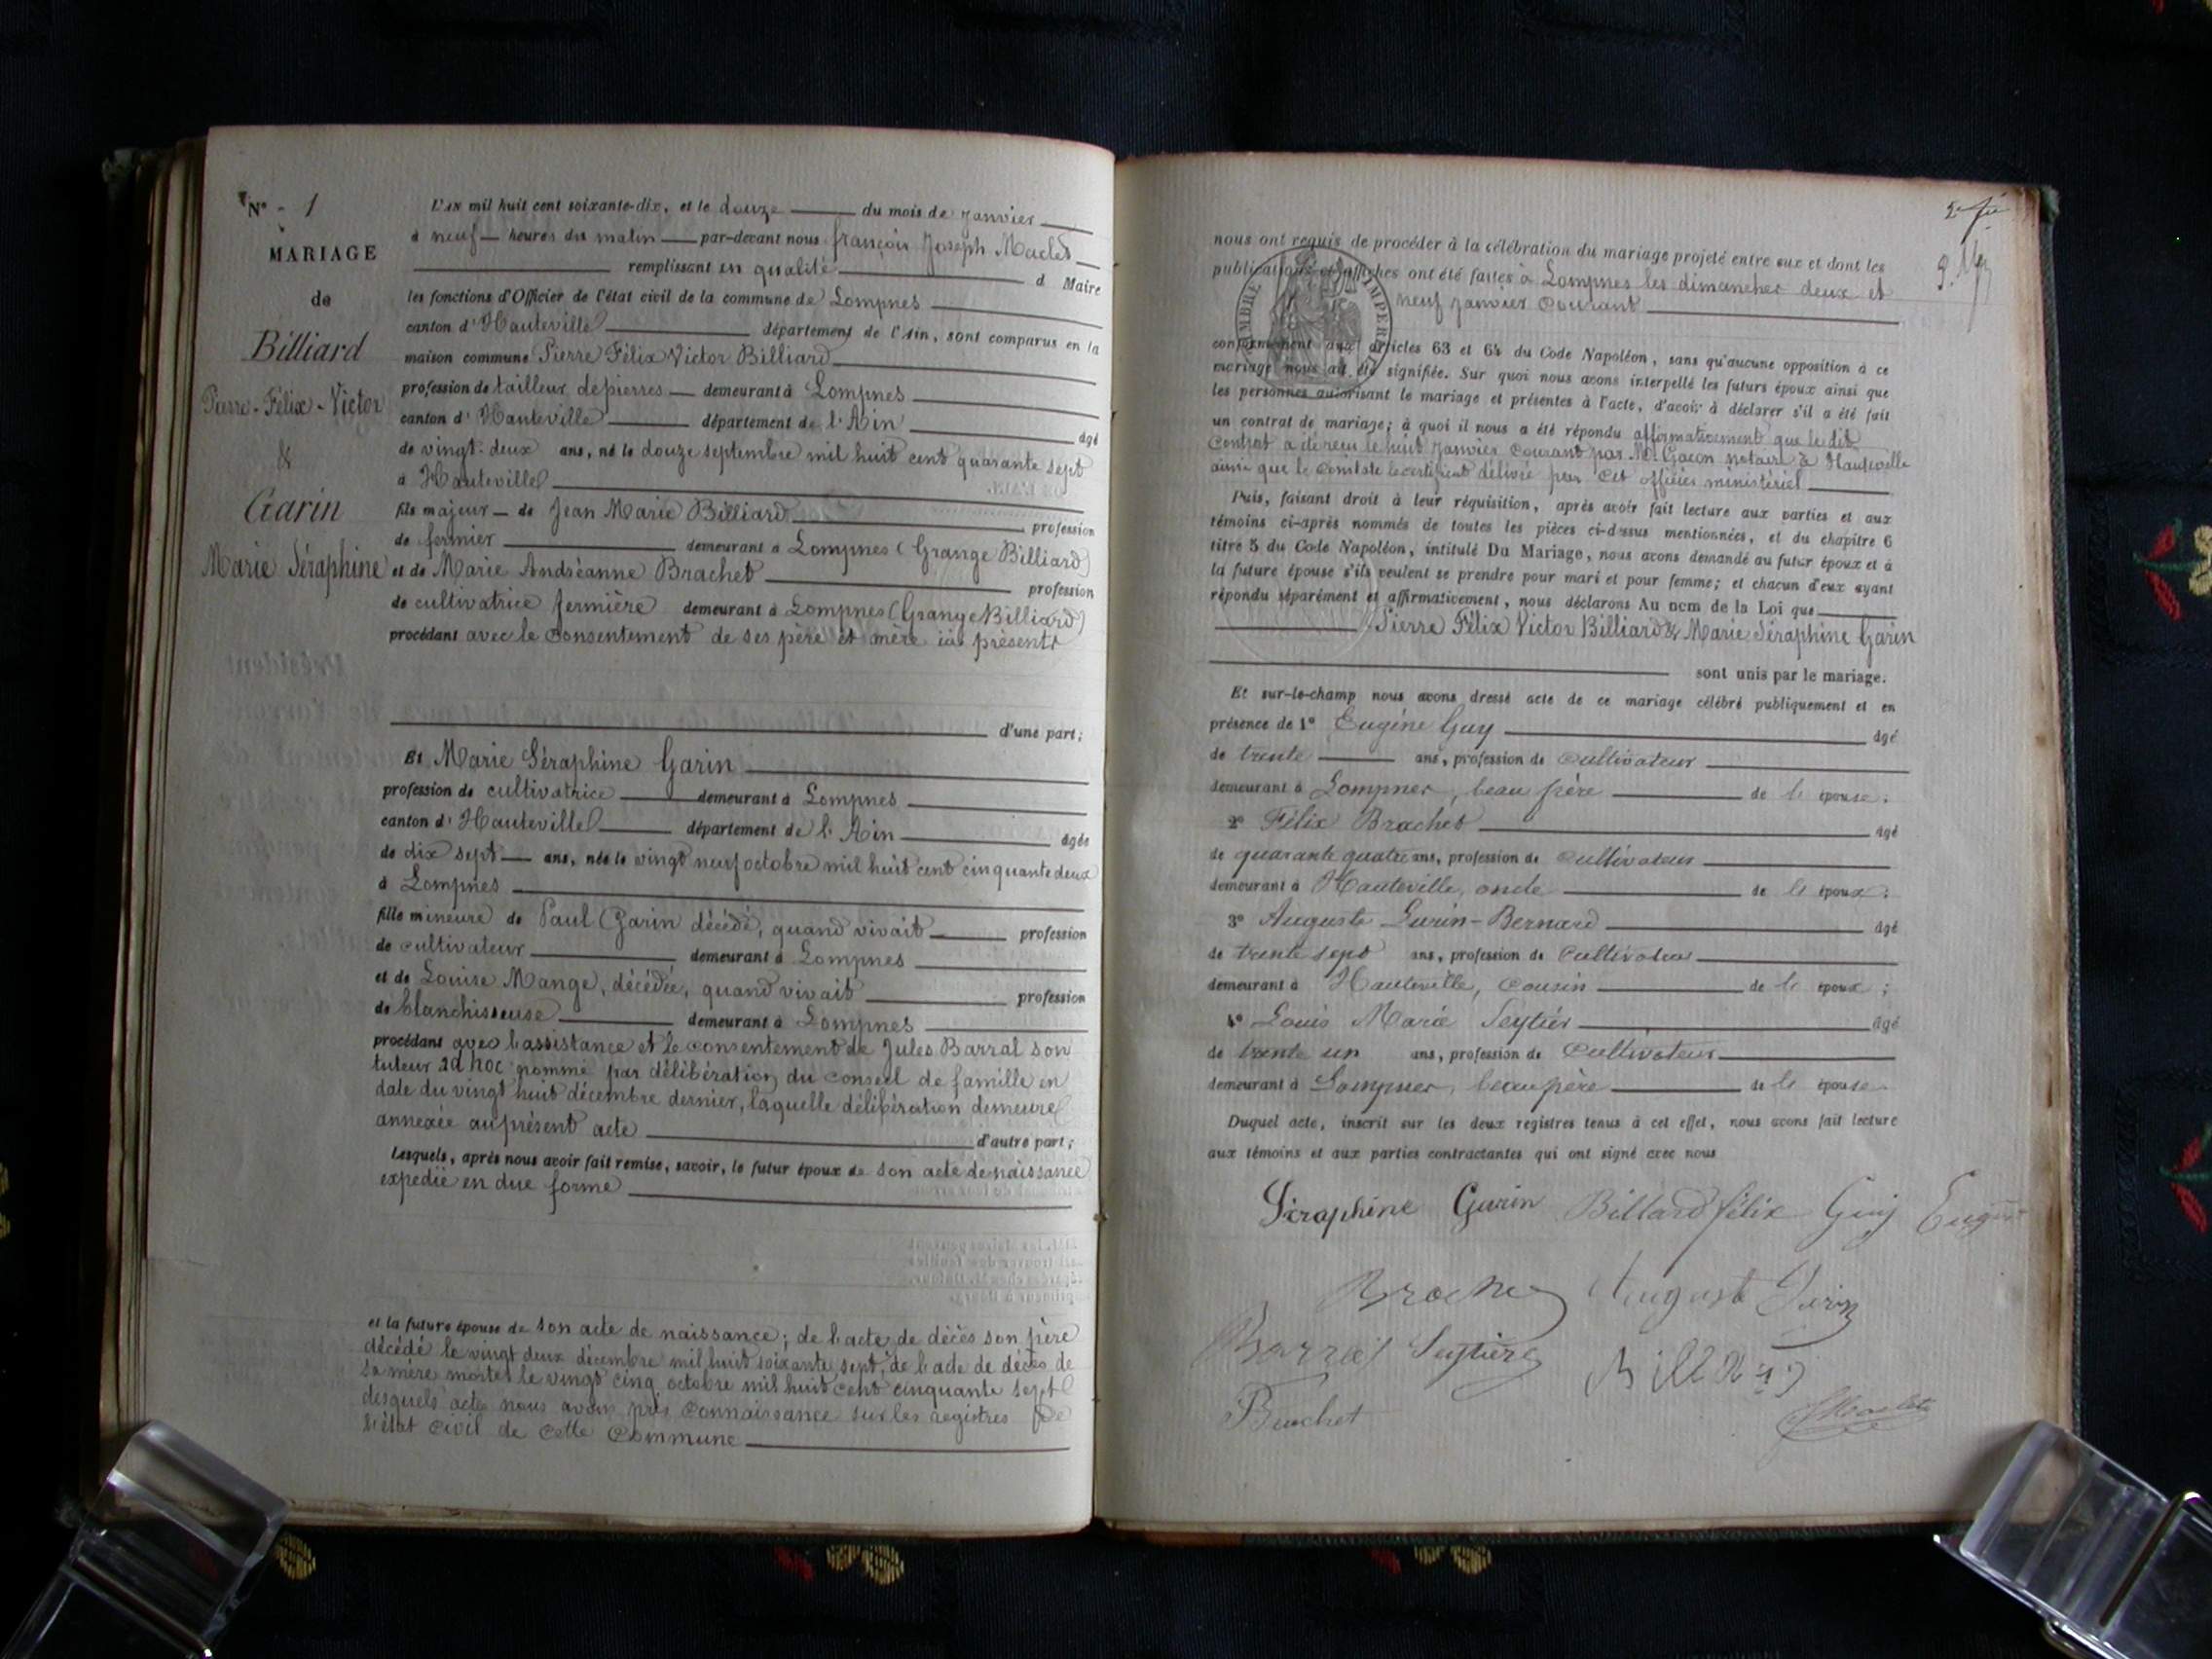 N° - 1
MARIAGE
de
Billiard
Pierre-Félix-Victor
&
Garin
Marie Séraphine
L'AN mil huit cent soixante-dix, et le douze du mois de janvier
à neuf heures du matin par-devant nous françois Joseph Maclet
remplissant en qualité d Maire
les fonctions d'Officier de l'état civil de la commune de Lompnes
canton d'Hauteville département de l'Ain, sont comparus en la
maison commune Pierre Félix Victor Billiard
profession de tailleur de pierres demeurant à Lompnes
canton d'Hauteville département de l'Ain âgé
de vingt-deux ans, né le douze septembre mil huit cent quarante sept
à Hauteville
fils majeur de Jean Marie Billiard profession
de fermier demeurant à Lompnes (Grange Billiard)
et de Marie Andréanne Brachet profession
de cultivatrice fermière demeurant à Lompnes (Grange Billiard)
procédant avec le consentement de ses père et mère ici présents
d'une part;
Et Marie Séraphine Garin
profession de cultivatrice demeurant à Lompnes
canton d'Hauteville département de l'Ain âgée
de dix sept ans, née le vingt neuf octobre mil huit cent cinquante deux
à Lompnes
fille mineure de Paul Garin décédé, quand vivait profession
de cultivateur demeurant à Lompnes
et de Louise Mange, décédée, quand vivait profession
de blanchisseuse demeurant à Lompnes
procédant avec l'assistance et le consentement de Jules Barral son
tuteur ad hoc nommé par délibération du conseil de famille en
date du vingt huit décembre dernier, laquelle délibération demeure
annexée au présent acte d'autre part;
Lesquels, après nous avoir fait remise, savoir, le futur époux de son acte de naissance
expédié en due forme
et la future épouse de son acte de naissance; de l'acte de décès son père
décédé le vingt deux décembre mil huit soixante sept, de l'acte de décès de
sa mère morte le vingt cinq octobre mil huit cent cinquante sept
desquels actes nous avons pris connaissance sur les registres de
l'état civil de cette commune
nous ont requis de procéder à la célébration du mariage projeté entre eux et dont les
publications et affiches ont été faites à Lompnes les dimanches deux et
neuf janvier courant
conformément aux articles 63 et 64 du Code Napoléon, sans qu'aucune opposition à ce
mariage nous ait été signifiée. Sur quoi nous avons interpellé les futurs époux ainsi que
les personnes autorisant le mariage et présentes à l'acte, d'avoir à déclarer s'il a été fait
un contrat de mariage; à quoi il nous a été répondu affirmativement que le dit
contrat a été reçu le huit janvier courant par Me Gacon notaire à Hauteville
ainsi que le constate le certificat délivré par cet officier ministériel
Puis, faisant droit à leur réquisition, après avoir fait lecture aux parties et aux
témoins ci-après nommés de toutes les pièces ci-dessus mentionnées, et du chapitre 6
titre 5 du Code Napoléon, intitulé Du Mariage, nous avons demandé au futur époux et à
la future épouse s'ils veulent se prendre pour mari et pour femme; et chacun d'eux ayant
répondu séparément et affirmativement, nous déclarons Au nom de la Loi que
Pierre Félix Victor Billiard & Marie Séraphine Garin
sont unis par le mariage.
Et sur-le-champ nous avons dressé acte de ce mariage célébré publiquement et en
présence de 1° Eugène Guy âgé
de trente ans, profession de cultivateur
demeurant à Lompnes, beau frère de l'épouse;
2° Félix Brachet âgé
de quarante quatre ans, profession de cultivateur
demeurant à Hauteville, oncle de l'époux;
3° Auguste Lurin-Bernard âgé
de trente sept ans, profession de cultivateur
demeurant à Hauteville, cousin de l'époux;
4° Louis Marie Seytier âgé
de trente un ans, profession de cultivateur
demeurant à Lompnes, beau père de l'épouse
Duquel acte, inscrit sur les deux registres tenus à cet effet, nous avons fait lecture
aux témoins et aux parties contractantes qui ont signé avec nous
Séraphine Garin Billard félix Guy Eugène
Brachet August Lurin
Barral Seytier Billard
Brachet Maclet